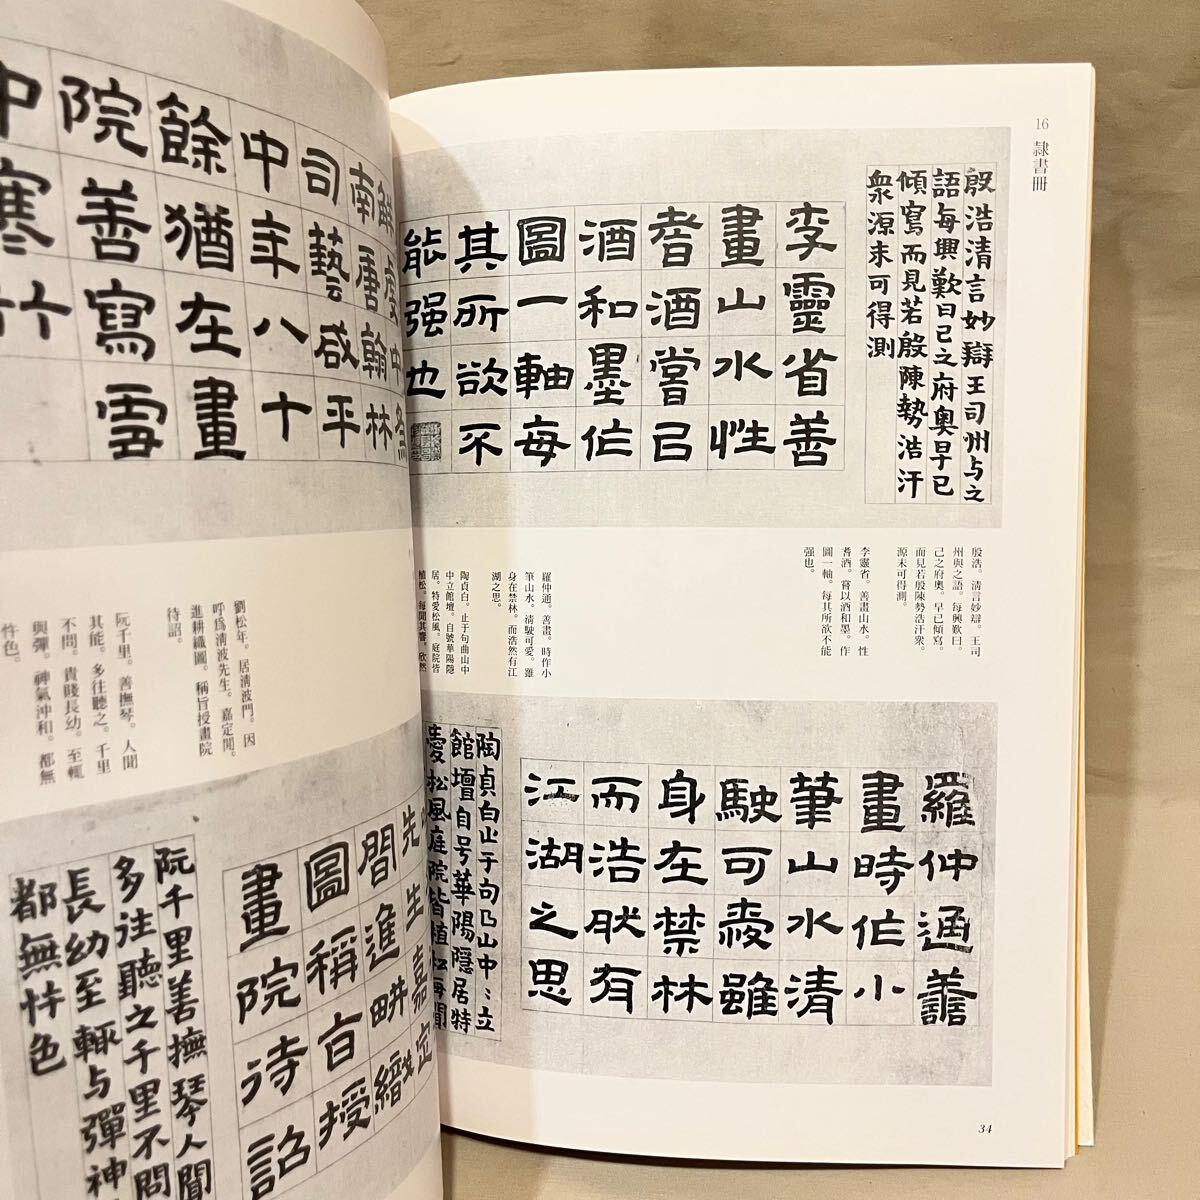 16 隷書冊
殷浩清言妙辯王司州与之
語每興歎曰己之府奧早已
傾寫而見若殷陳勢浩汗
衆源未可得測
李靈省善
畫山水性
耆酒嘗已
酒和墨作
圖一軸每
其所欲不
能强也
殷浩。清言妙辯。王司
州與之語。每興歎曰。
己之府奧。早已傾寫。
而見若殷陳勢浩汗衆。
源未可得測。
李靈省。善畫山水。性
耆酒。嘗以酒和墨。作
圖一軸。每其所欲不能
强也。
羅仲通。善畫。時作小
筆山水。清駛可愛。雖
身在禁林。而浩然有江
湖之思。
陶貞白。止于句曲山中
中立館壇。自號華陽隱
居。特愛松風。庭院皆
植松。每聞其響。欣然
羅仲通善
畫時作小
筆山水清
駛可愛雖
身在禁林
而浩肰有
江湖之思
陶貞白止于句曲山中〻立
館壇自号華陽隱居特
愛松風庭院皆植松每聞
34
南唐翰林
司藝咸平
中年八十
餘猶在畫
院善寫雪
中寒竹
劉松年。居淸波門。因
呼爲淸波先生。嘉定閒。
進耕織圖。稱旨授畫院
待詔。
阮千里。善撫琴。人聞
其能。多往聽之。千里
不問。貴賤長幼。至輒
與彈。神氣沖和。都無
忤色。
先生嘉定
間進畊繒
圖稱旨授
畫院待詔
阮千里善撫琴人聞
多往聽之千里不問
長幼至輒与彈神
都無忤色